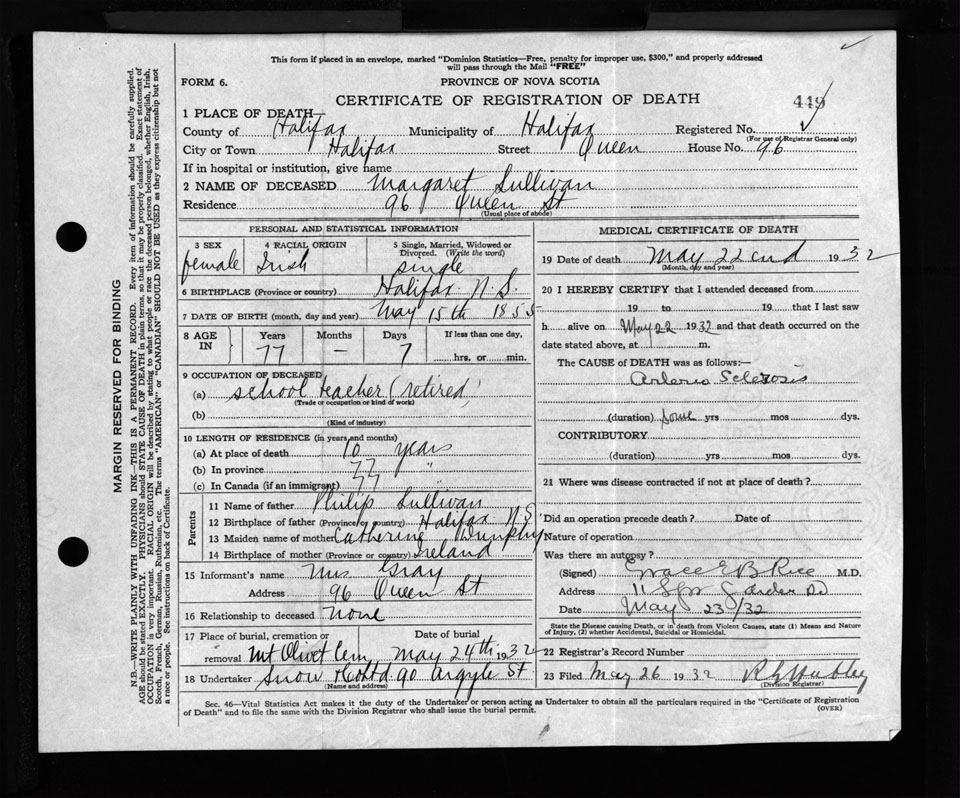 This form if placed in an envelope, marked "Dominion Statistics—Free, penalty for improper use, $300," and properly addressed
will pass through the Mail "FREE"
FORM 6.
PROVINCE OF NOVA SCOTIA
CERTIFICATE OF REGISTRATION OF DEATH
449
1 PLACE OF DEATH—
County of Halifax Municipality of Halifax Registered No.
(For use of Registrar General only)
City or Town Halifax Street Queen House No. 96
If in hospital or institution, give name
2 NAME OF DECEASED Margaret Sullivan
Residence 96 Queen St
(Usual place of abode)
PERSONAL AND STATISTICAL INFORMATION
3 SEX female
4 RACIAL ORIGIN Irish
5 Single, Married, Widowed or Divorced. (Write the word) single
6 BIRTHPLACE (Province or country) Halifax N.S.
7 DATE OF BIRTH (month, day and year) May 15th 1855
8 AGE IN Years 77 Months — Days 7 If less than one day, hrs. or min.
9 OCCUPATION OF DECEASED
(a) school teacher (retired)
(Trade or occupation or kind of work)
(b)
(Kind of industry)
10 LENGTH OF RESIDENCE (in years and months)
(a) At place of death 10 years
(b) In province 77 "
(c) In Canada (if an immigrant) 77
Parents
11 Name of father Philip Sullivan
12 Birthplace of father (Province or country) Halifax N.S.
13 Maiden name of mother Catherine Dunphy
14 Birthplace of mother (Province or country) Ireland
15 Informant's name Mrs Gray
Address 96 Queen St
16 Relationship to deceased none
17 Place of burial, cremation or removal Mt Olivet Cem
Date of burial May 24th 1932
18 Undertaker Snow & Co Ltd 90 Argyle St
(Name and address)
MEDICAL CERTIFICATE OF DEATH
19 Date of death May 22cnd 1932
(Month, day and year)
20 I HEREBY CERTIFY that I attended deceased from
19 to 19 that I last saw
h alive on May 22 1932 and that death occurred on
date stated above, at m.
The CAUSE of DEATH was as follows:—
Arterio Sclerosis
(duration) some yrs mos dys.
CONTRIBUTORY
(duration) yrs mos dys.
21 Where was disease contracted if not at place of death?
Did an operation precede death? Date of
Nature of operation
Was there an autopsy?
(Signed) Grace E B Rice M.D.
Address Garden Rd
Date May 23/32
State the Disease causing Death, or in death from Violent Causes, state (1) Means and Nature
of Injury, (2) whether Accidental, Suicidal or Homicidal.
22 Registrar's Record Number
23 Filed May 26 1932
(Division Registrar)
Sec. 46—Vital Statistics Act makes it the duty of the Undertaker or person acting as Undertaker to obtain all the particulars required in the "Certificate of Registration
of Death" and to file the same with the Division Registrar who shall issue the burial permit.
(OVER)
MARGIN RESERVED FOR BINDING
N.B.—WRITE PLAINLY WITH UNFADING INK—THIS IS A PERMANENT RECORD. Every item of information should be carefully supplied.
AGE should be stated EXACTLY. PHYSICIANS should STATE CAUSE OF DEATH in plain terms, so that it may be properly classified. Exact statement of
OCCUPATION is very important. RACIAL ORIGIN will be described by stating to what people or race the deceased person belonged, whether English, Irish,
Scotch, French, German, Russian, Ruthenian, etc. The terms "AMERICAN" or "CANADIAN" SHOULD NOT BE USED as they express citizenship but not
a race or people. See instructions on back of Certificate.